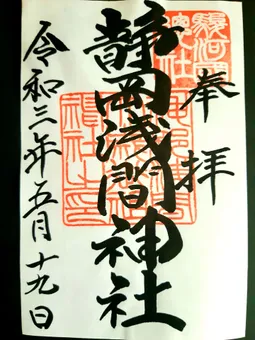 奉拝
静岡浅間神社
令和三年五月十九日